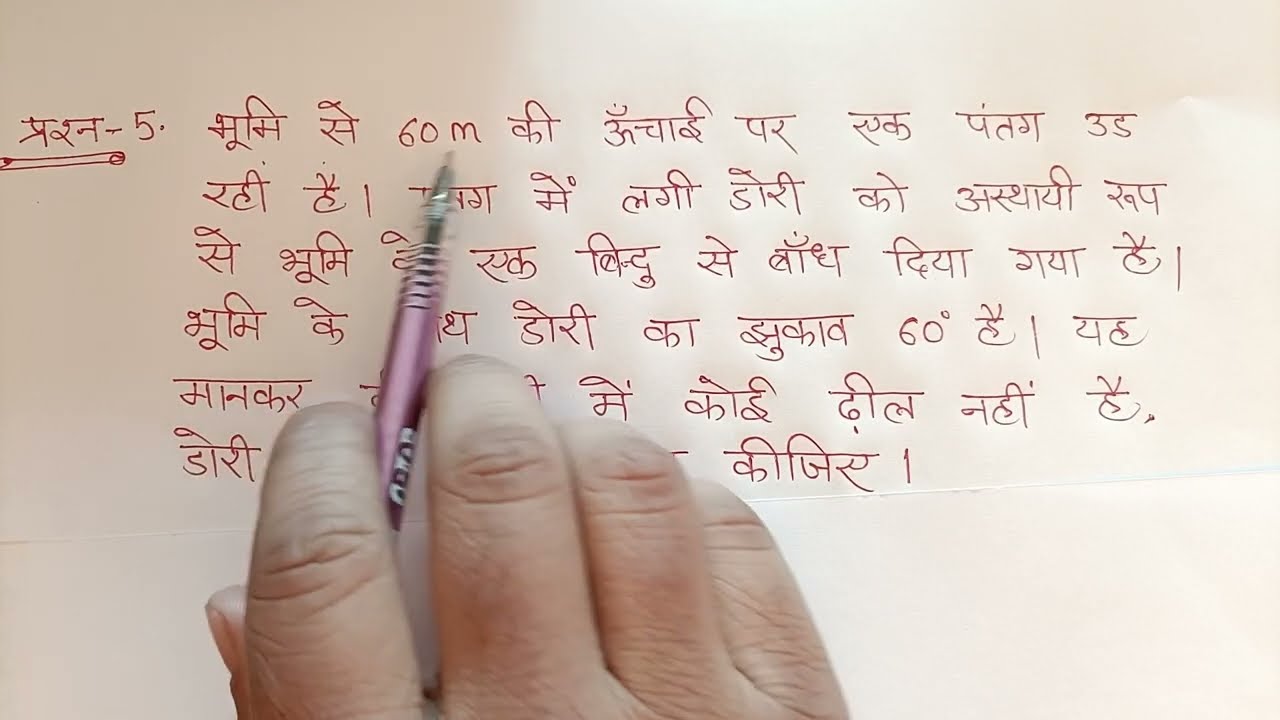 प्रश्न-5. भूमि से 60m की ऊँचाई पर एक पंतग उड
रहीं है। में लगी डोरी को अस्थायी रूप
से भूमि एक बिन्दु से बाँध दिया गया है।
भूमि के डोरी का झुकाव 60° है। यह
मानकर में कोई ढ़ील नहीं है,
डोरी कीजिए।